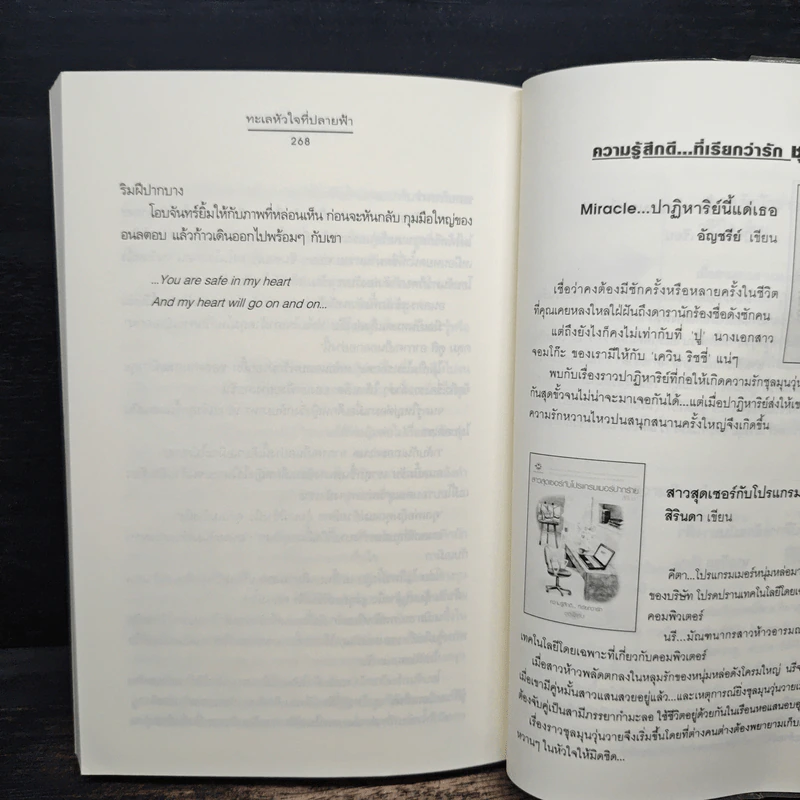 ทะเลหัวใจที่ปลายฟ้า
268
ริมฝีปากบาง
โอบจันทร์ยิ้มให้กับภาพที่หล่อนเห็น ก่อนจะหันกลับ กุมมือใหญ่ของ
อนลตอบ แล้วก้าวเดินออกไปพร้อมๆ กับเขา
...You are safe in my heart
And my heart will go on and on...
ความรู้สึกดี...ที่เรียกว่ารัก
Miracle...ปาฏิหาริย์นี้แด่เธอ
อัญชรีย์ เขียน
เชื่อว่าคงต้องมีซักครั้งหรือหลายครั้งในชีวิต
ที่คุณเคยหลงใหลใฝ่ฝันถึงดารานักร้องชื่อดังซักคน
แต่ถึงยังไงก็คงไม่เท่ากับที่ 'ปู' นางเอกสาว
จอมโก๊ะ ของเรามีให้กับ 'เควิน ริชชี่' แน่ๆ
พบกับเรื่องราวปาฏิหาริย์ที่ก่อให้เกิดความรักชุลมุนวุ่น
กันสุดขั้วจนไม่น่าจะมาเจอกันได้...แต่เมื่อปาฏิหาริย์ส่งให้เข
ความรักหวานไหวปนสนุกสนานครั้งใหญ่จึงเกิดขึ้น
สาวสุดเซอร์กับโปรแกรมเมอร์ปากร้าย
สาวสุดเซอร์กับโปรแกรม
สิรินดา เขียน
คีตา...โปรแกรมเมอร์หนุ่มหล่อมา
ของบริษัท โปรดปรานเทคโนโลยีโดยเฉ
คอมพิวเตอร์
นรี...มัณฑนากรสาวห้าวอารมณ
เทคโนโลยีโดยเฉพาะที่เกี่ยวกับคอมพิวเตอร์
เมื่อสาวห้าวพลัดตกลงในหลุมรักของหนุ่มหล่อดังโครมใหญ่ นรีจ
เมื่อเขามีคู่หมั้นสาวแสนสวยอยู่แล้ว...และเหตุการณ์ยิ่งชุลมุนวุ่นวายเ
ต้องจับคู่เป็นสามีภรรยากำมะลอ ใช้ชีวิตอยู่ด้วยกันในเรือนหอแสนอบอุ่
เรื่องราวชุลมุนวุ่นวายจึงเริ่มขึ้นโดยที่ต่างคนต่างต้องพยายามเก็บ
หวานๆ ในหัวใจให้มิดชิด...